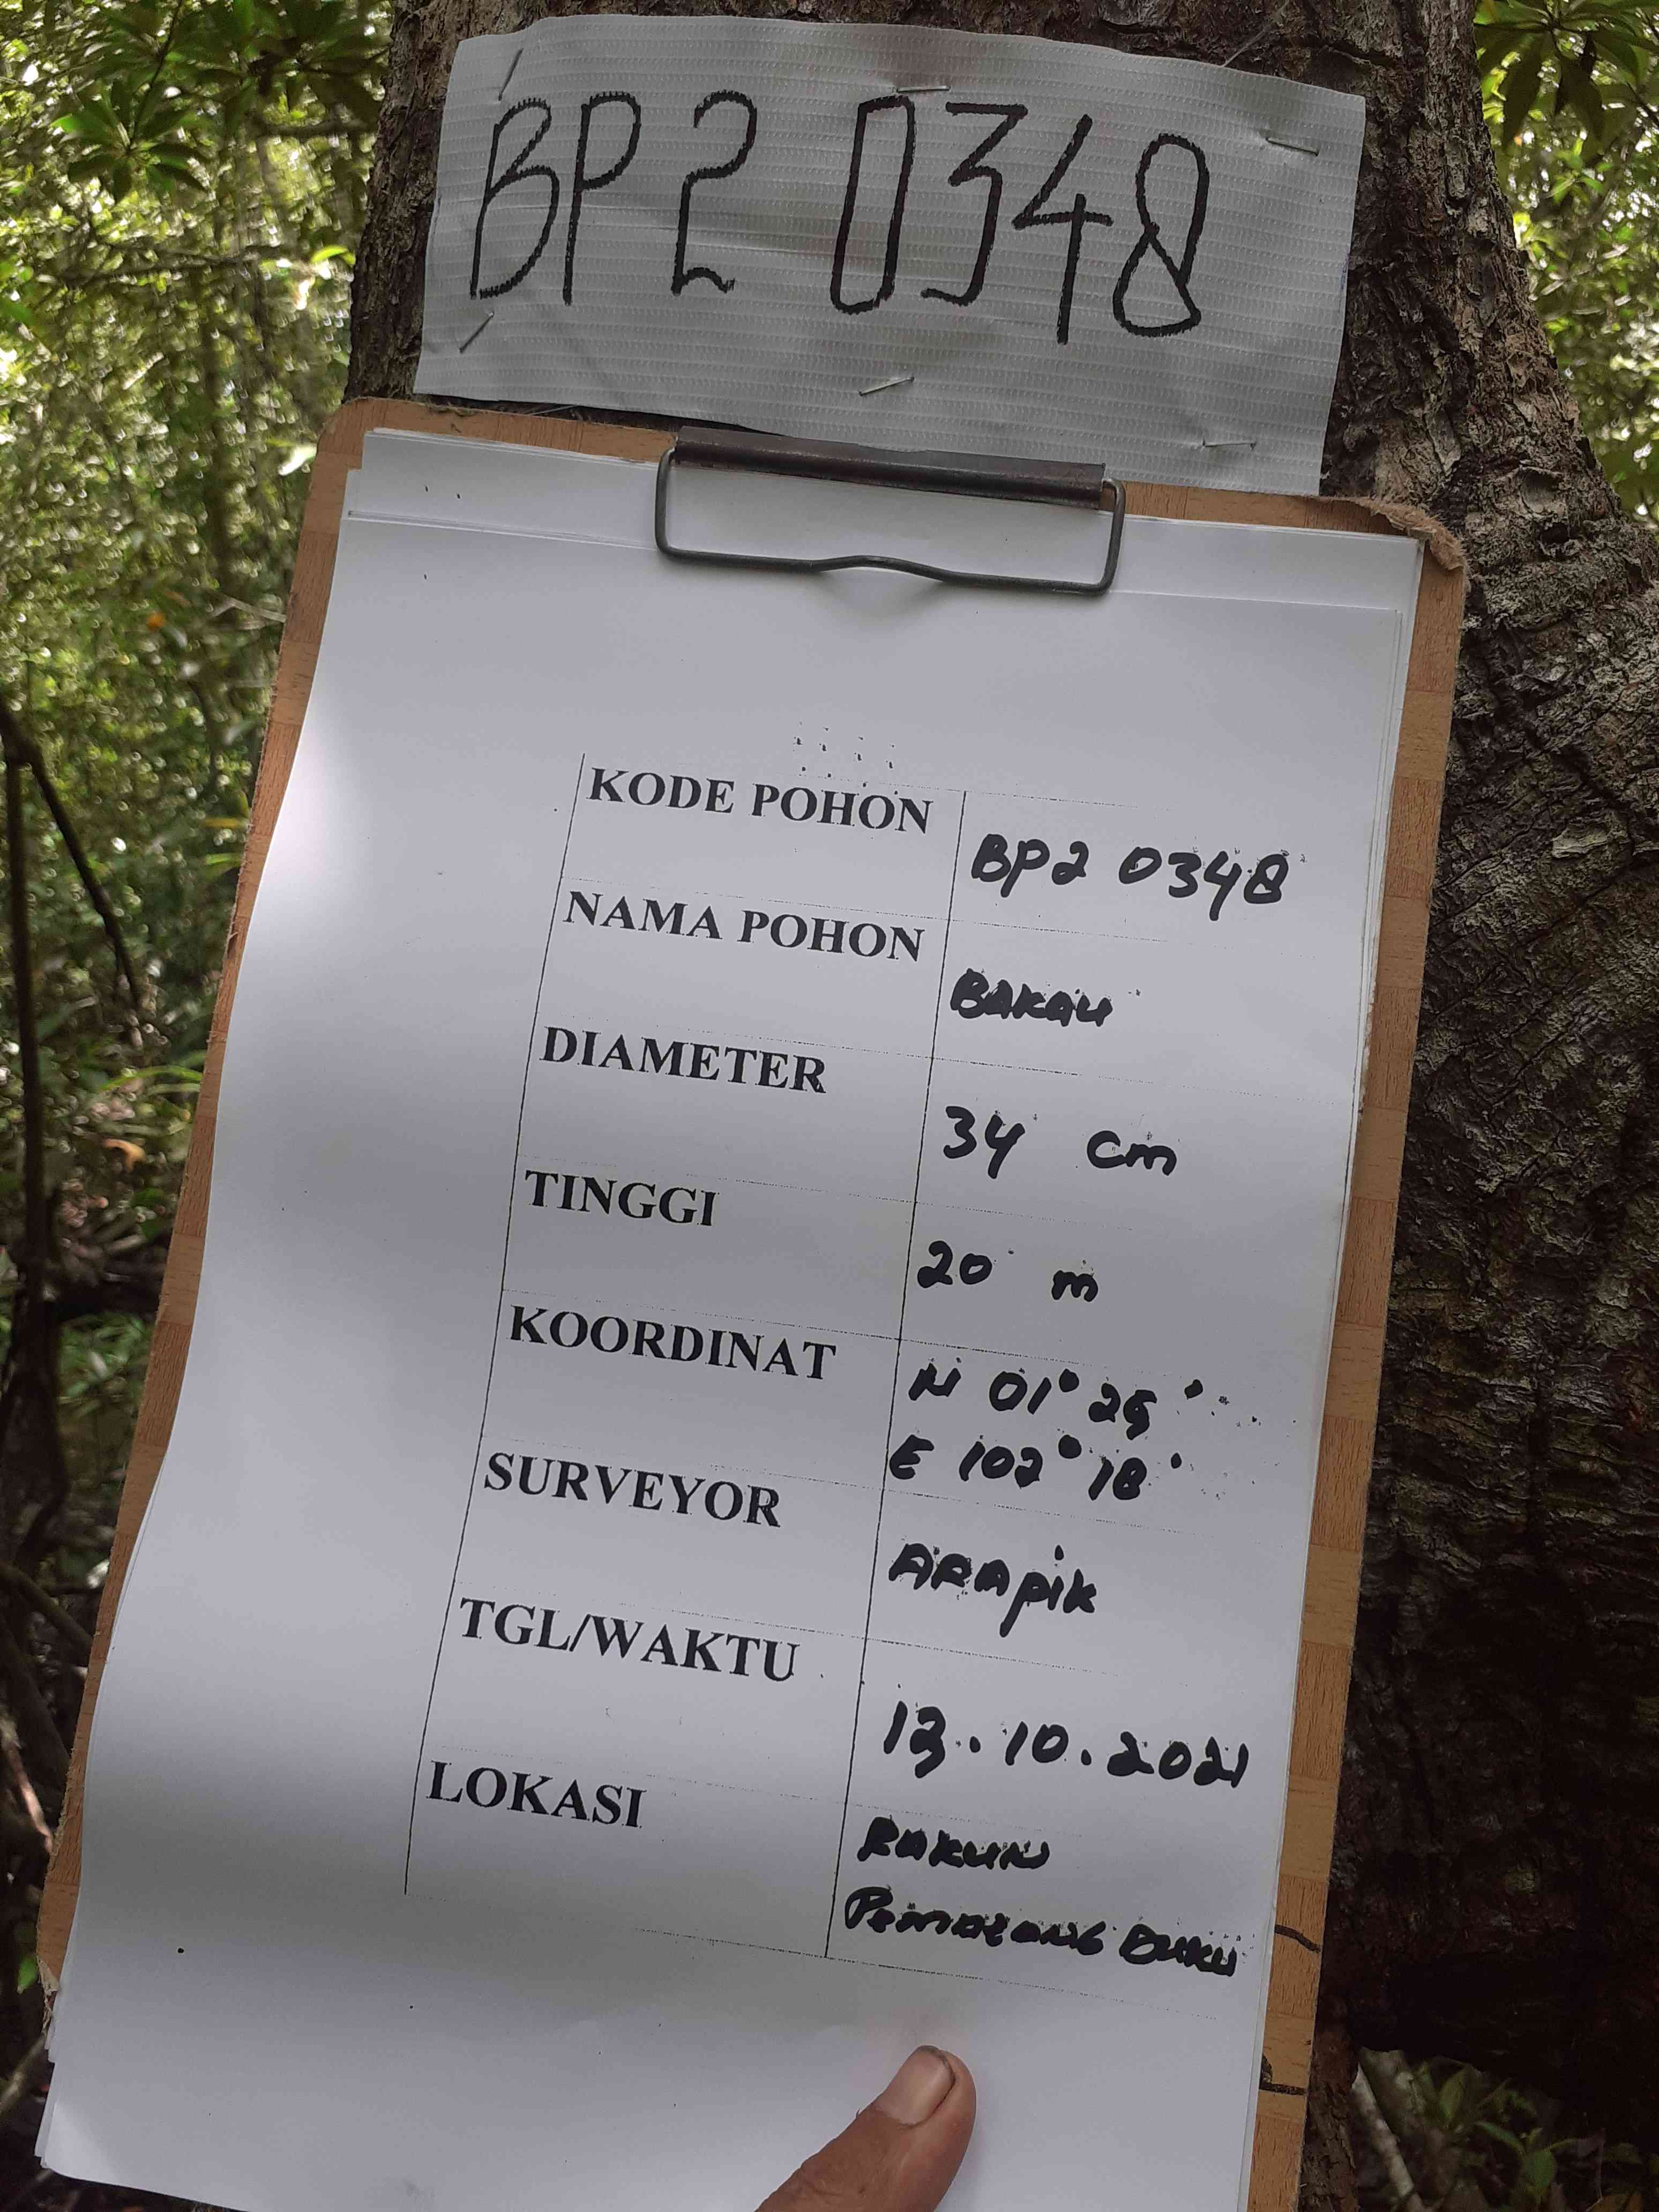 BP2 0348
KODE POHON
BP2 0348
NAMA POHON
BAKAU
DIAMETER
34 cm
TINGGI
20 m
KOORDINAT
N 01° 25'
E 102° 18'
SURVEYOR
ARAPIK
TGL/WAKTU
13.10.2021
LOKASI